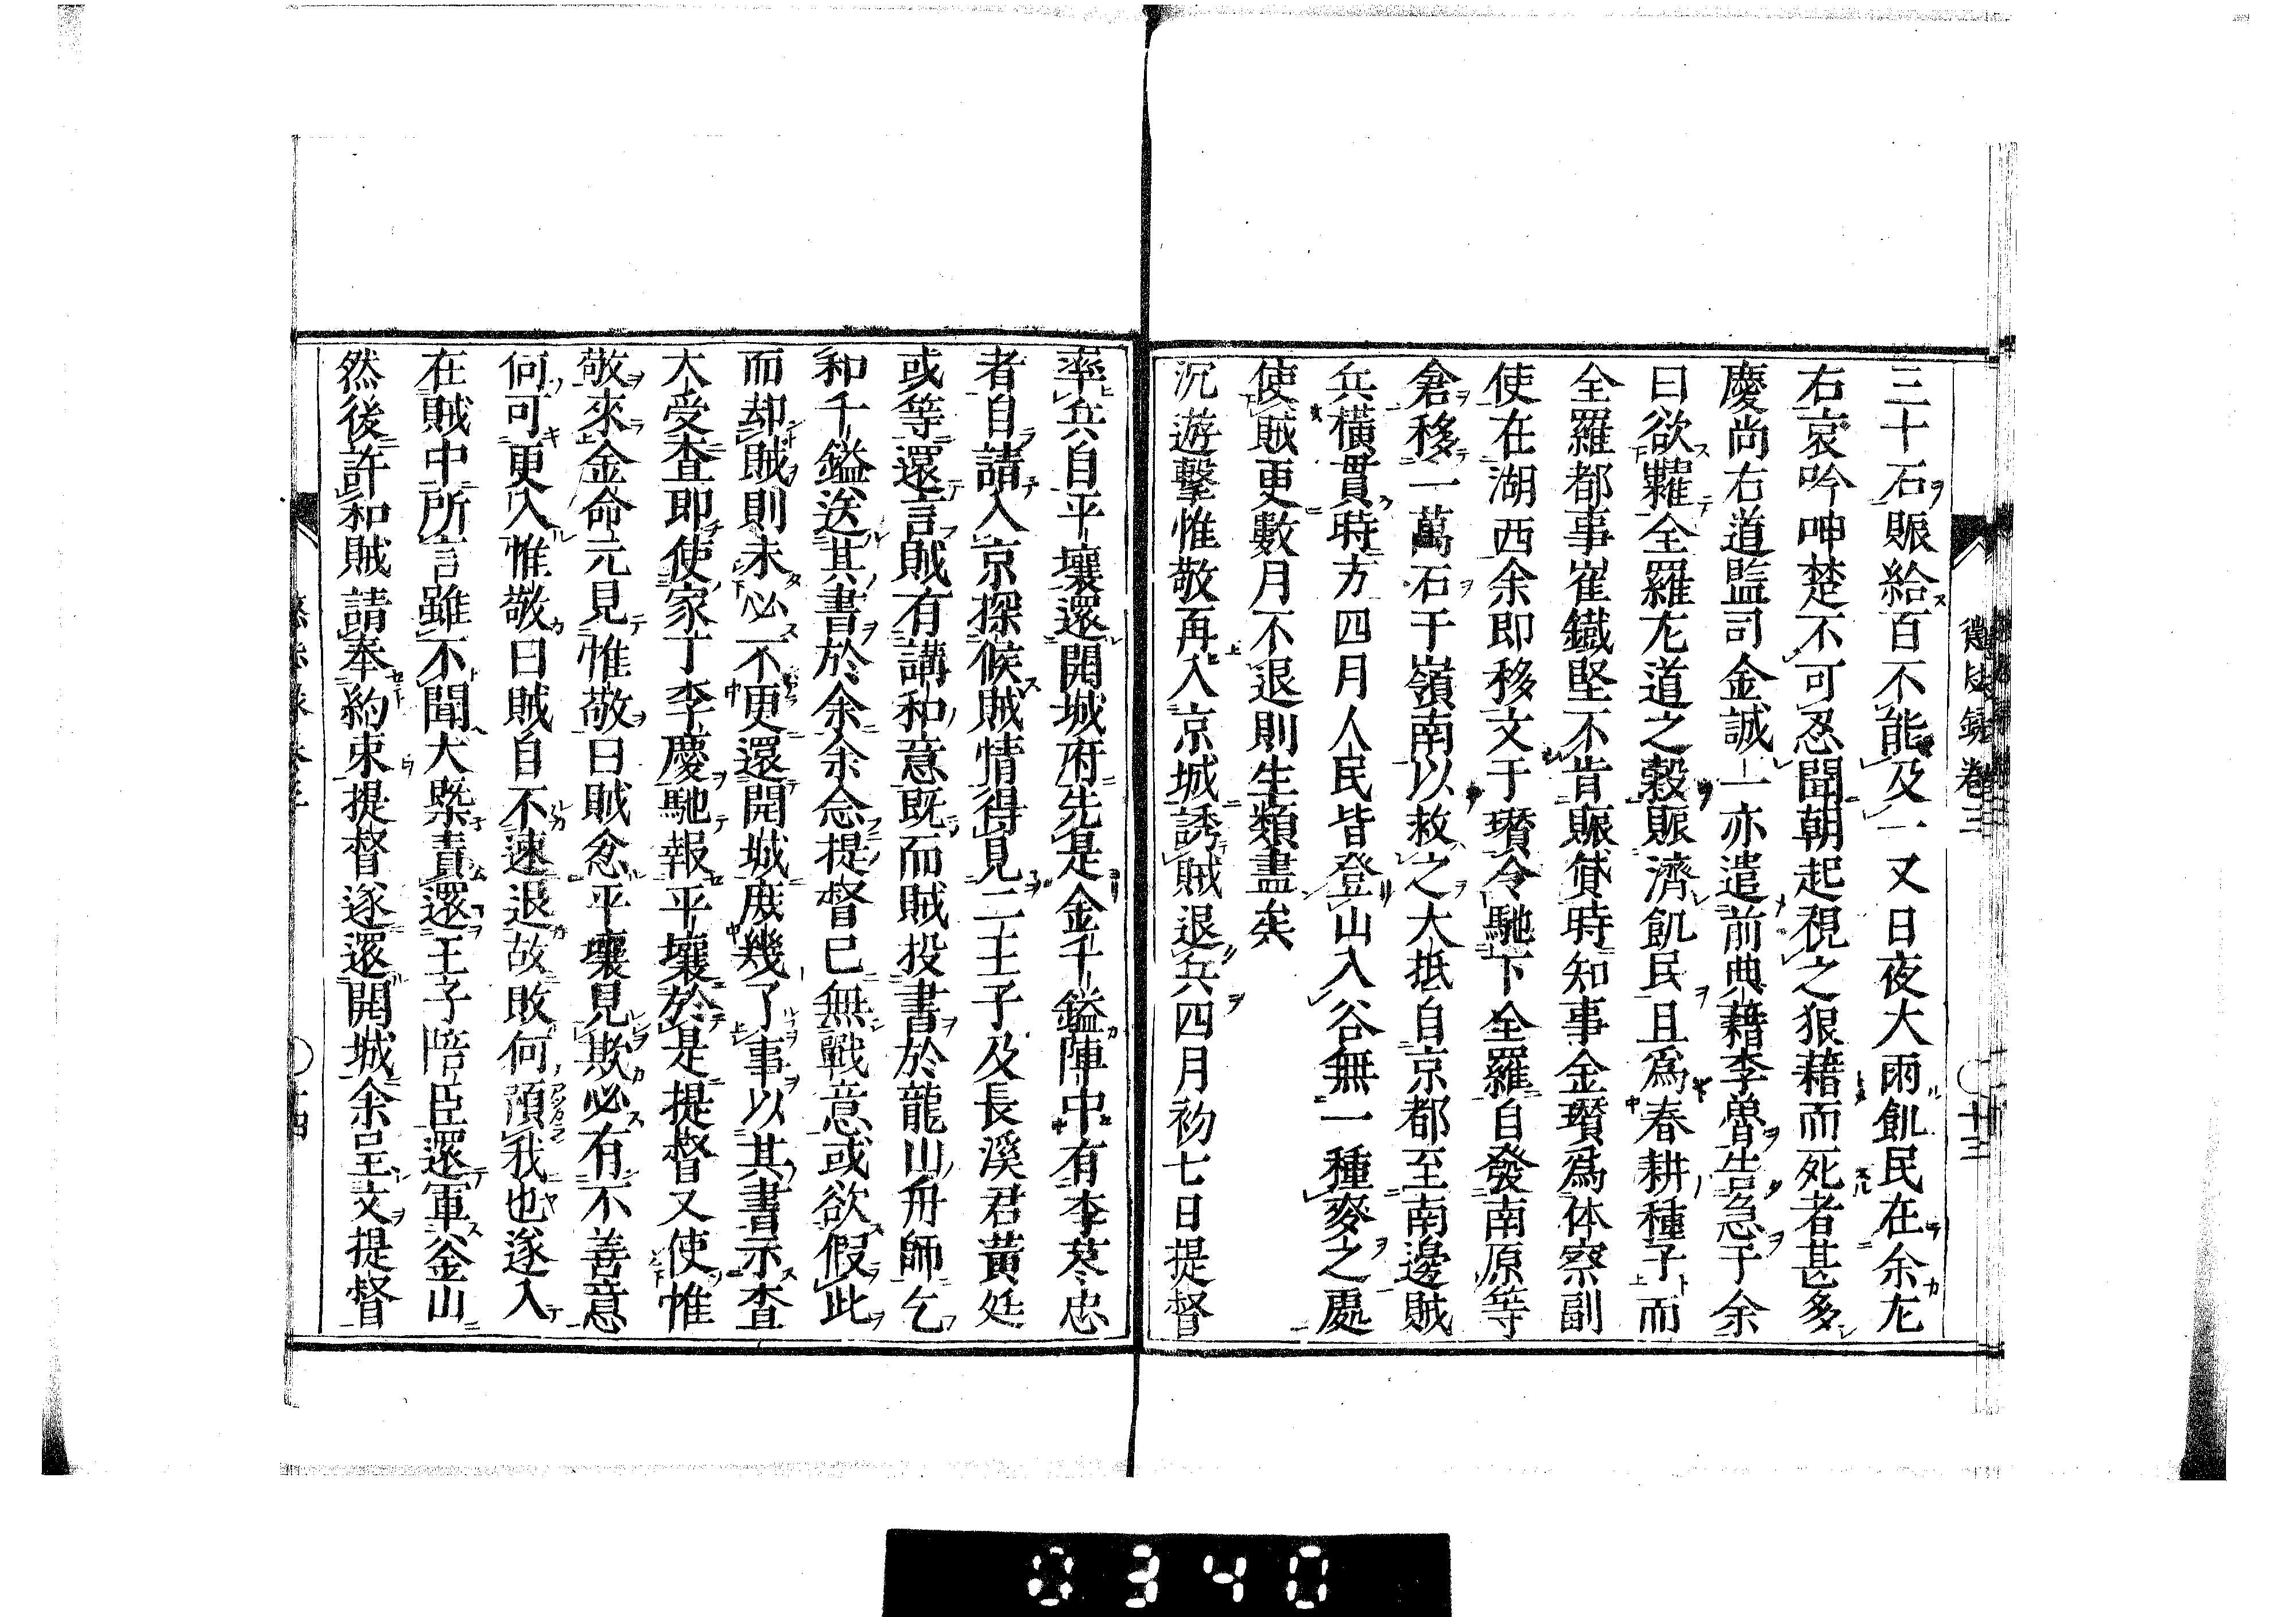 懲毖録卷三
三十石賑給百不能及一又日夜大雨飢民在余左
右哀吟呻楚不可忍聞朝起視之狼藉而死者甚多
慶尚右道監司金誠一亦遣前典籍李魯告急于余
曰欲糶全羅左道之穀賑濟飢民且爲春耕種子而
全羅都事崔鐵堅不肯賑貸時知事金瓚爲体察副
使在湖西余即移文于瓚令馳下全羅自發南原等
倉移一萬石于嶺南以救之大抵自京都至南邊賊
兵横貫時方四月人民皆登山入谷無一種麥之處
使賊更數月不退則生類盡矣
沉遊擊惟敬再入京城誘賊退兵四月初七日提督
率兵自平壤還開城府先是金千鎰陣中有李藎忠
者自請入京探候賊情得見二王子及長溪君黃廷
彧等還言賊有講和意既而賊投書於龍山舟師乞
和千鎰送其書於余余念提督已無戰意或欲假此
而却賊則未必不更還開城庻幾了事以其書示査
大受査即使家丁李慶馳報平壤於是提督又使惟
敬來金命元見惟敬曰賊忿平壤見欺必有不善意
何可更入惟敬曰賊自不速退故敗何預我也遂入
在賊中所言雖不聞大槩責還王子陪臣還軍釜山
然後許和賊請奉約束提督遂還開城余呈文提督
0340